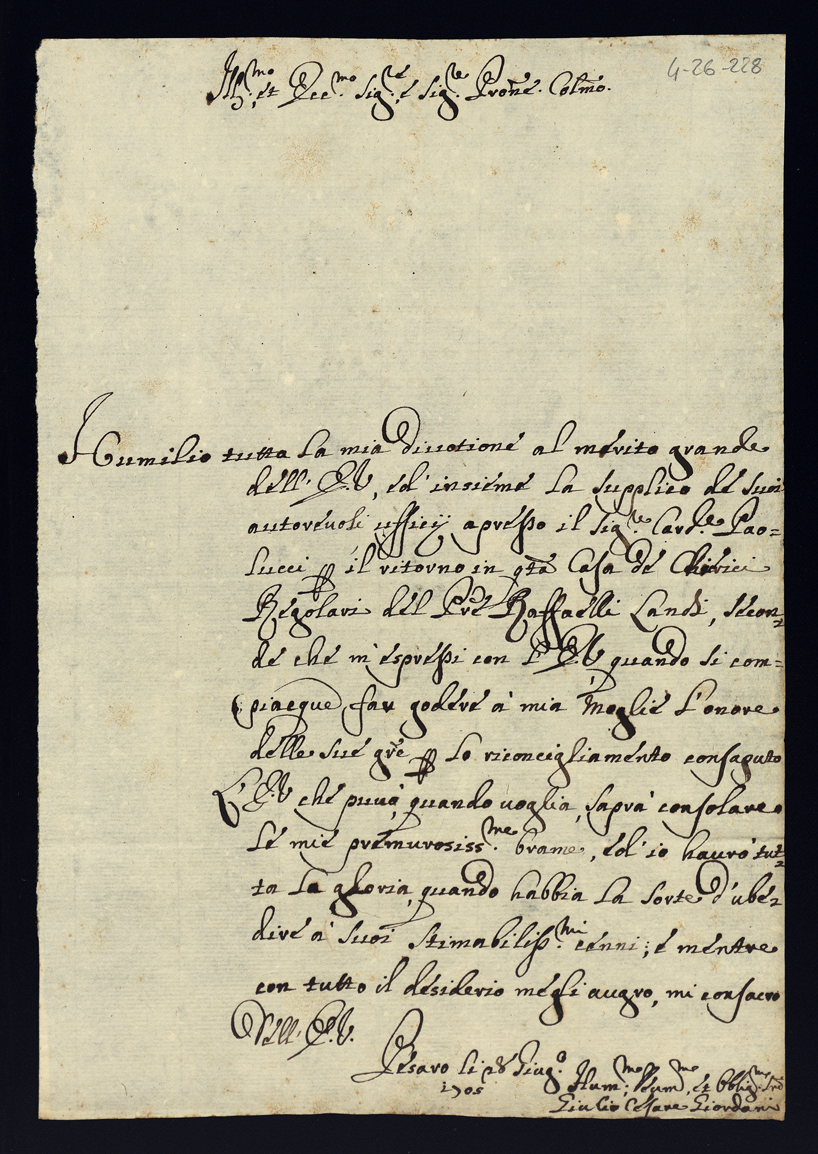 4-26-228
Ill.mo et Ecc.mo Sig.re, e Sig.re Prone. Colmo.
Humilio tutta la mia divotione al merito grande
dell'E.V., ed' insieme la supplico de suoi
autorevoli ufficij apresso il Sig.re Card.le Pao=
lucci p il ritorno in qta Casa de Chierici
Regolari del Pre Raffaelli Landi, secon=
de che m'espressi con l'E.V. quando si com=
piacque far godere à mia Moglie l'onore
delle sue gre p lo riconcigliamento consaputo
L'E.V. che puuà, quando voglia, saprà consolare
le mie premurosiss.me brame, ed' io haurò tut=
ta la gloria, quando habbia la sorte d'ube=
dire à suoi stimabiliss.mi cenni; e mentre
con tutto il desiderio megli augro, mi consacro
Dell'E.V.
Pesaro li 28 Giug.o
1705
Hum.mo, et Obblig.mo
Giulio Cesare Giordani